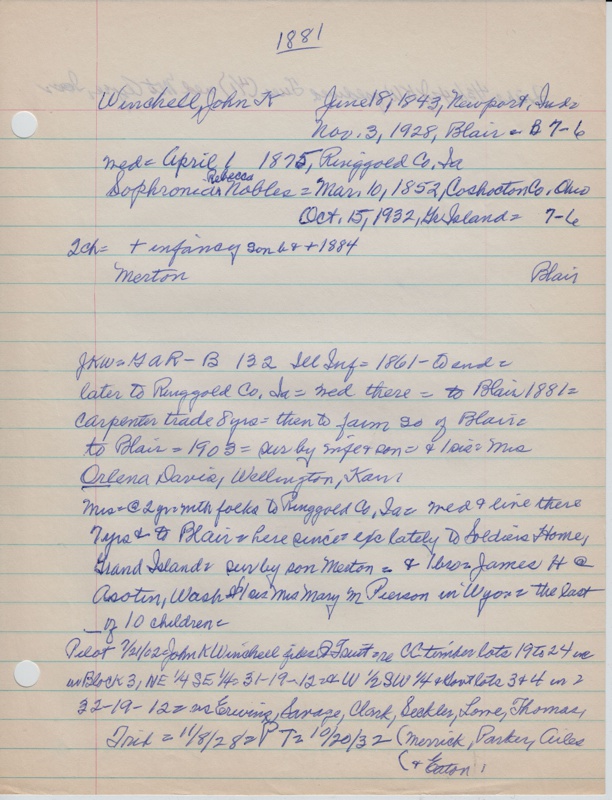 1881
Winchell, John K June 18, 1843, Newport, Ind=
Nov. 3, 1928, Blair = B 7-6
med= April 1 1875, Ringgold Co, Ia
Rebecca
Sophronia Nobles = Mar. 10, 1852, Coshocton Co, Ohio
Oct. 15, 1932, Gr Island= 7-6
2ch= + infancy son b & + 1884
Merton Blair
JKW= GAR-B 132 Ill Inf= 1861-to end=
later to Ringgold Co, Ia= med there = to Blair 1881=
carpenter trade 8yrs= then to farm so of Blair=
to Blair = 1903= sur by wife & son= & 1 sis= Mrs
Orlena Davis, Wellington, Kan,
Mrs=@ 2yr= with folks to Ringgold Co, Ia= med & live there
7yrs & to Blair= here since= exc lately to Soldiers Home,
Grand Island= sur by son Merton = & 1 bro= James H @
Asotin, Wash & 1 sis Mrs Mary M Pierson in Wyo= = the last
of 10 children=
Pilot 7/21/02= John K Winchell gives D Trust = re CC timber lots 19 to 24 inc
in Block 3, NE 1/4 SE 1/4= 31-19-12= & W 1/2 SW 1/4 & Govt lots 3 & 4 in =
32-19-12= = vs Erwing, Savage, Clark, Lowe, Thomas,
Trib = 11/8/28= P T= 10/20/32 (Merrick, Parker,
(& Eaton,